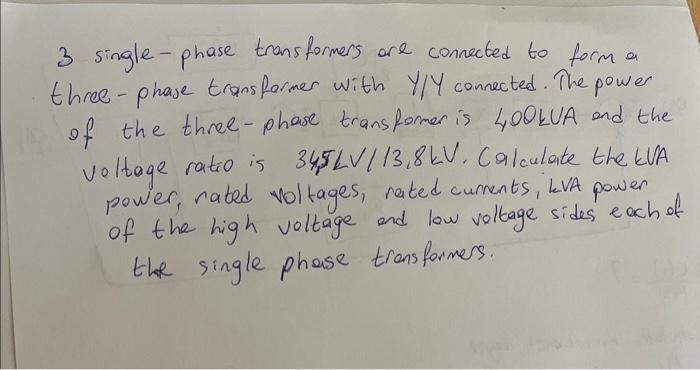 3 single-phase transformers are connected to form a
three-phase transformer with Y/Y connected. The power
of the three-phase transformer is 400kVA and the
voltage ratio is 34,5kV/13,8kV. Calculate the kVA
power, rated voltages, rated currents, kVA power
of the high voltage and low voltage sides each of
the single phase transformers.